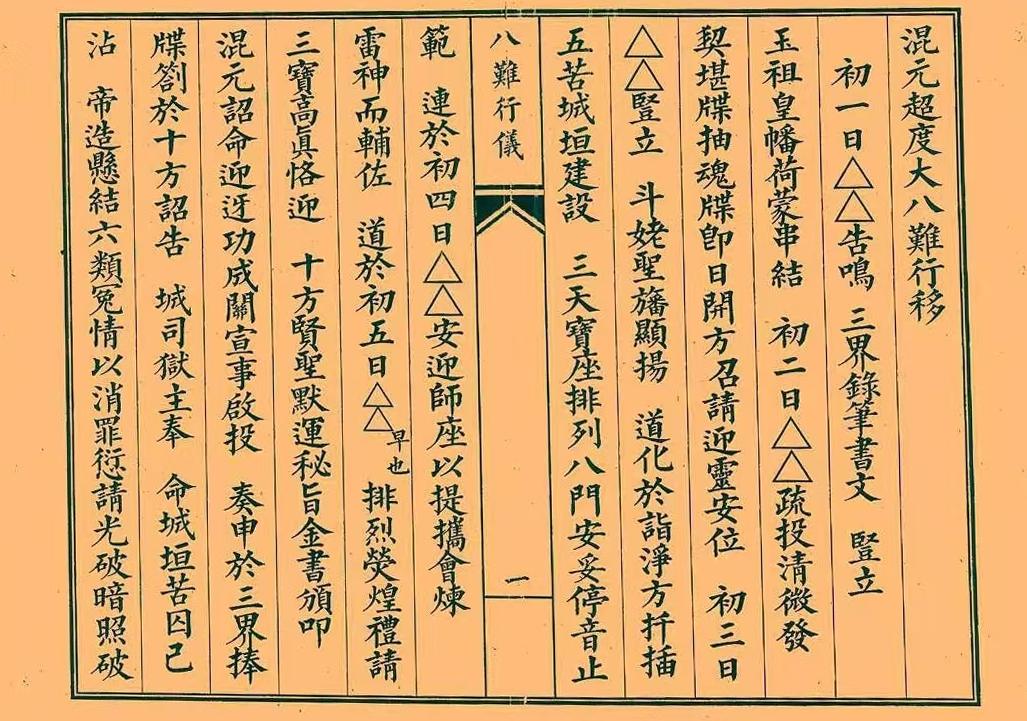 混元超度大八難行移
初一日△△告鳴　三界錄筆書文　豎立
玉祖皇幡荷蒙串結　初二日△△疏投清微發
契堪牒抽魂牒即日開方召請迎靈安位　初三日
△△豎立　斗姥聖旛顯揚　道化於詣淨方扦插
五苦城垣建設　三天寶座排列八門安妥停音止
八難行儀
一
範　連於初四日△△安迎師座以提攜會煉
雷神而輔佐　道於初五日△△早也　排烈熒煌禮請
三寶高真恪迎　十方賢聖默運秘旨金書頒叩
混元詔命迎迓功成關宣事啟投　奏申於三界捧
牒劄於十方詔告　城司獄主奉　命城垣苦囚已
沾　帝造懸結六類冤情以消罪愆請光破暗照破